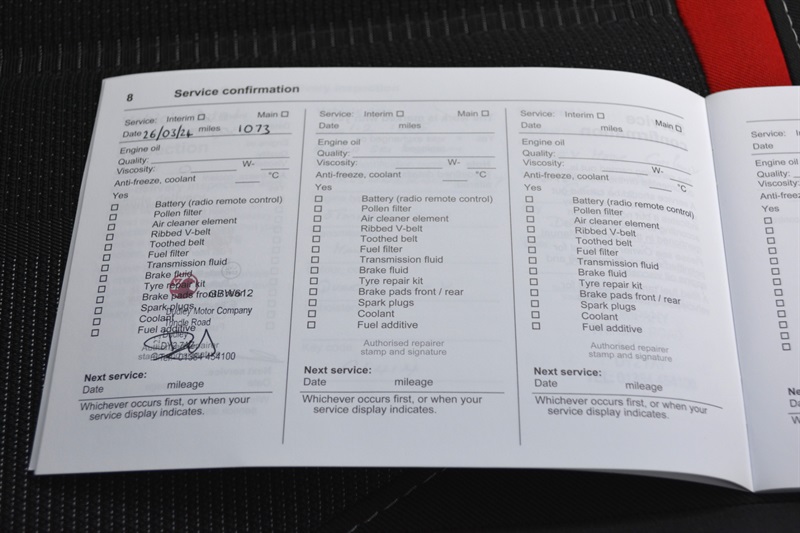 8 Service confirmation
Service: Interim Main
Date 26/03/24 miles 1073
Engine oil
Quality:
Viscosity: W-
Anti-freeze, coolant °C
Yes
Battery (radio remote control)
Pollen filter
Air cleaner element
Ribbed V-belt
Toothed belt
Fuel filter
Transmission fluid
Brake fluid
Tyre repair kit
Brake pads front
GBW612
Spark plugs
Motor Company
Coolant
Road
Fuel additive
454100
Next service:
Date mileage
Whichever occurs first, or when your
service display indicates.
Service: Interim Main
Date miles
Engine oil
Quality:
Viscosity: W-
Anti-freeze, coolant °C
Yes
Battery (radio remote control)
Pollen filter
Air cleaner element
Ribbed V-belt
Toothed belt
Fuel filter
Transmission fluid
Brake fluid
Tyre repair kit
Brake pads front / rear
Spark plugs
Coolant
Fuel additive
Authorised repairer
stamp and signature
Next service:
Date mileage
Whichever occurs first, or when your
service display indicates.
Service: Interim Main
Date miles
Engine oil
Quality:
Viscosity: W-
Anti-freeze, coolant °C
Yes
Battery (radio remote control)
Pollen filter
Air cleaner element
Ribbed V-belt
Toothed belt
Fuel filter
Transmission fluid
Brake fluid
Tyre repair kit
Brake pads front / rear
Spark plugs
Coolant
Fuel additive
Authorised repairer
stamp and signature
Next service:
Date mileage
Whichever occurs first, or when your
service display indicates.
Service:
Date
Engine oil
Quality:
Viscosity:
Yes